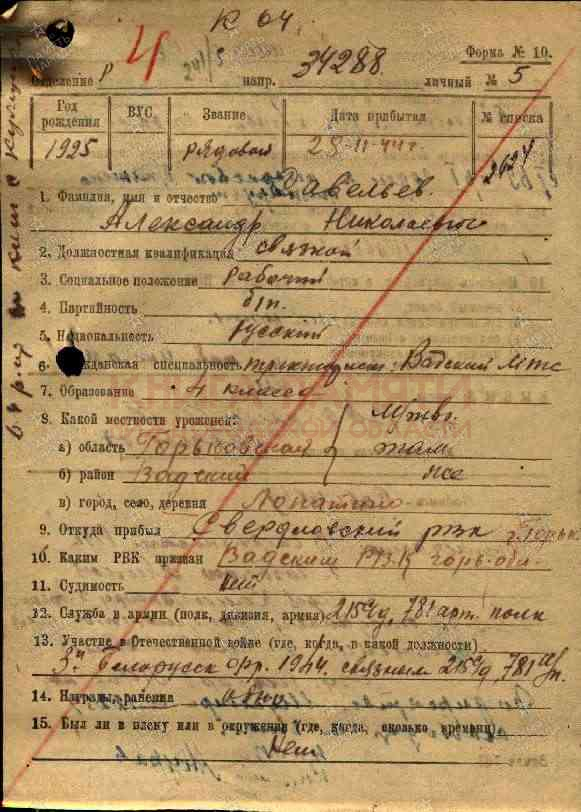 К 04.
4
Форма № 10.
Отделение Р напр. 34288 личный № 5
Год рождения ВУС Звание Дата прибытия № списка
1925 рядовой 23-11-44 г.
1. Фамилия, имя и отчество Савельев
Александр Николаевич
2. Должностная квалификация связной
3. Социальное положение рабочий
4. Партийность б/п.
5. Национальность русский
6. Гражданская специальность тракторист Вадский мтс
7. Образование 4 класса
8. Какой местности уроженец:
а) область Горьковской там
б) район Вадский же
в) город, село, деревня Лопатино
9. Откуда прибыл Свердловский рвк г. Горьк.
10. Каким РВК призван Вадским РВК Горь. обл.
11. Судимость нет
12. Служба в армии (полк, дивизия, армия) 215 сд, 781 арт. полк
13. Участие в Отечественной войне (где, когда, в какой должности)
3й Белорусск фр. 1944 связным 215 сд 781
14. Награды, ранения одно
15. Был ли в плену или в окружении (где, когда, сколько времени)
нет